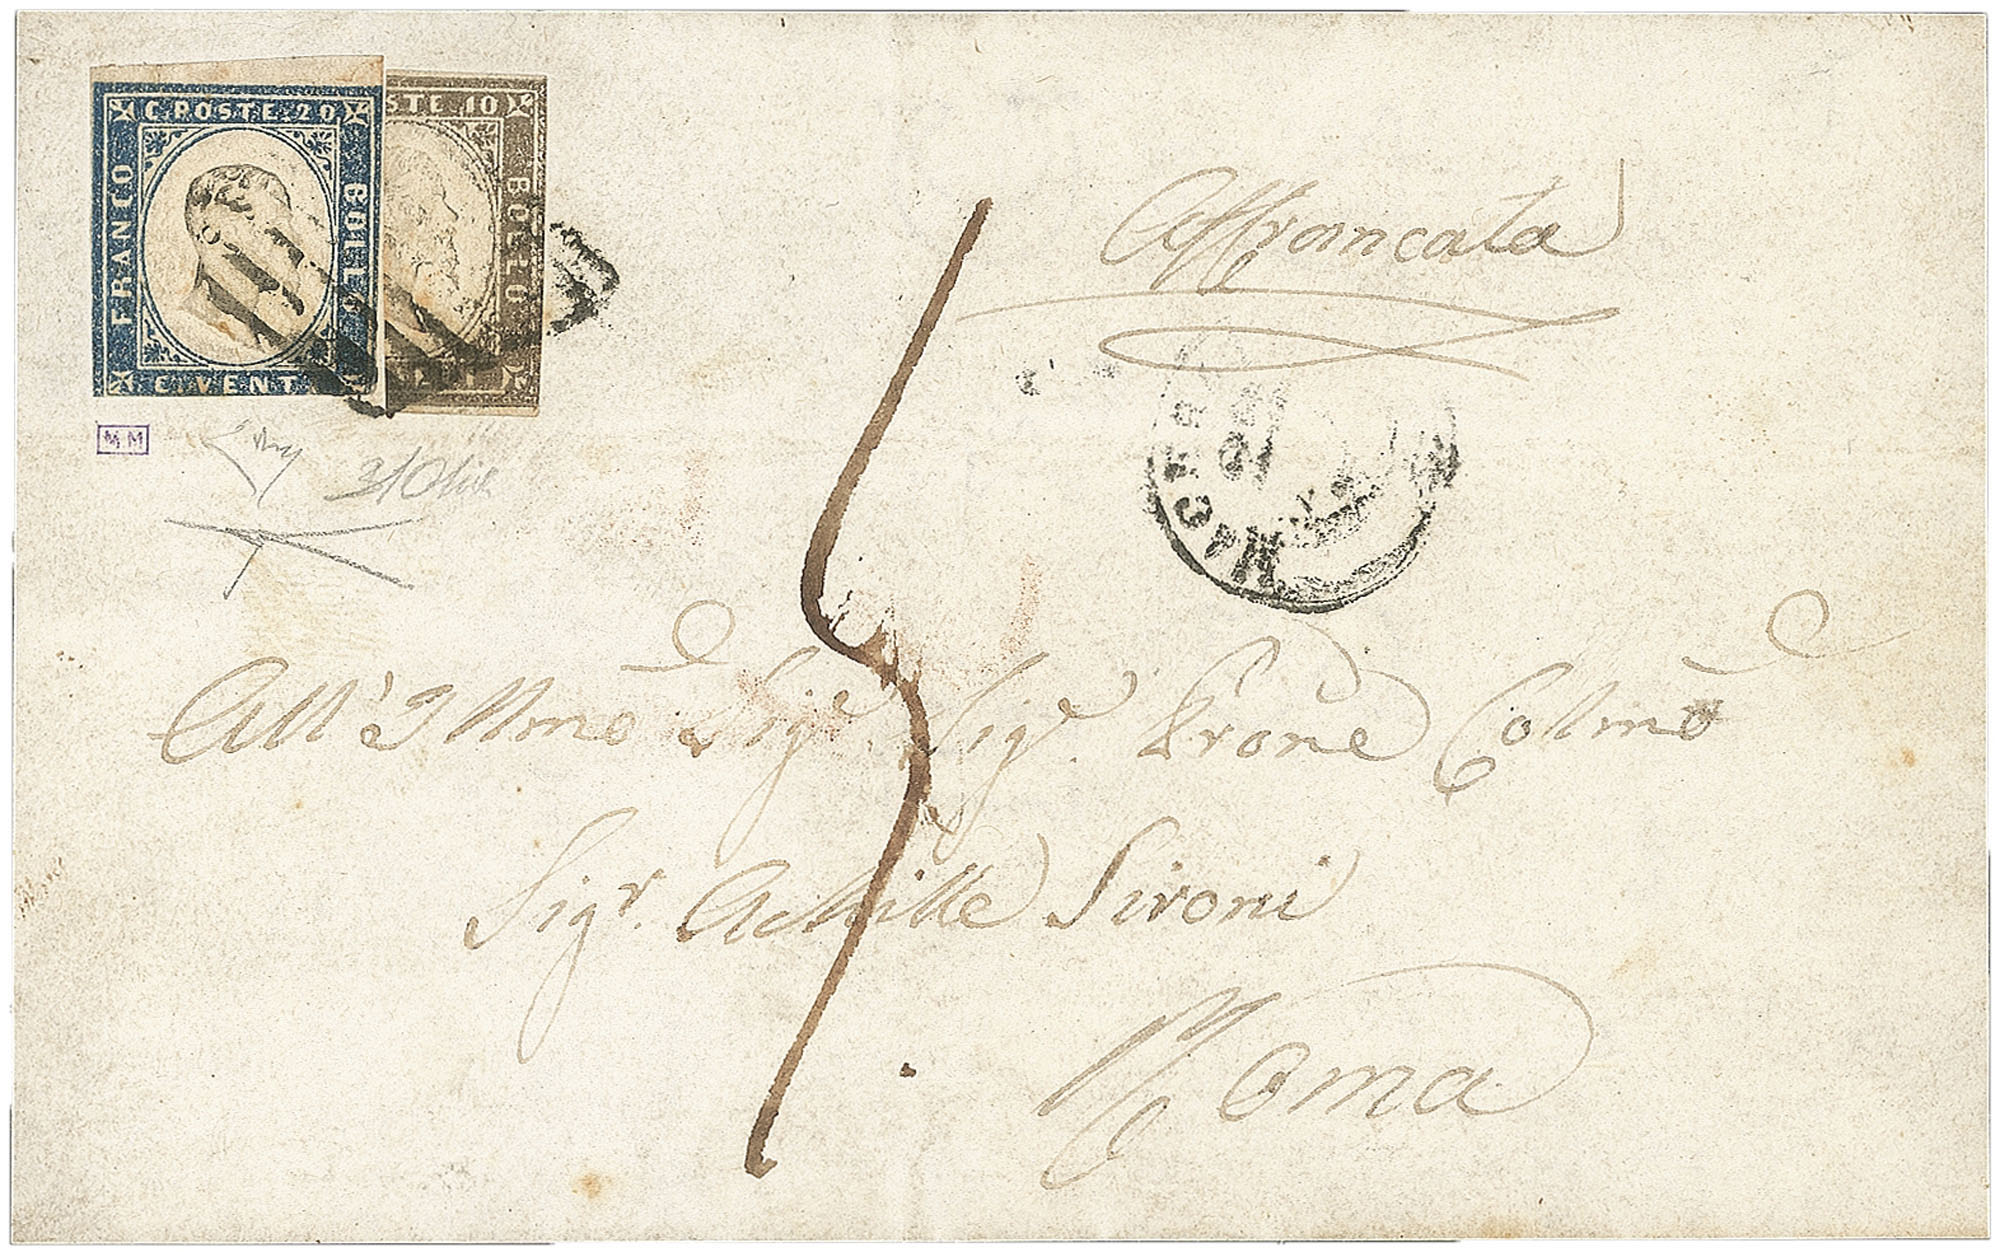 C. POSTE. 20
FRANCO
BOLLO
C. VENTI
STE 10
BOLLO
MM
Affrancata
MACERA
All' Illmo Sigr Sigr Prone Colmo
Sigr. Achille Sironi
Roma